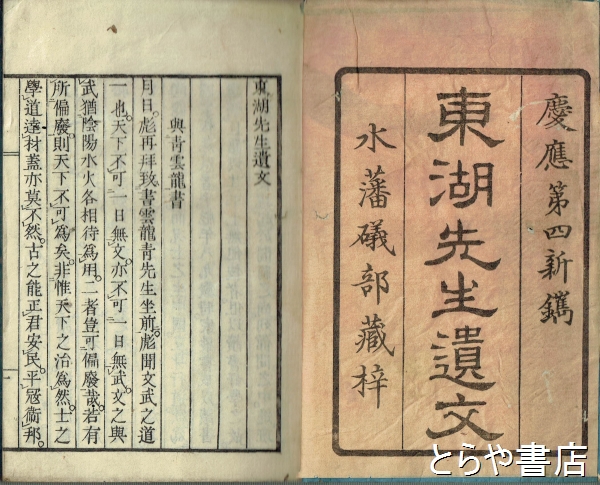 慶應第四新鐫
東湖先生遺文
水藩礒部藏梓
東湖先生遺文
與青雲龍書
月日。彪再拜致書雲龍青先生坐前。彪聞文武之道
一也。天下不可一日無文。亦不可一日無武。文之與
武猶陰陽水火各相待為用。二者豈可偏廢哉。若有
所偏廢則天下不可為矣。非惟天下之治為然。士之
學道達材蓋亦莫不然。古之能正君安民。平冦衞邦。
一
とらや書店